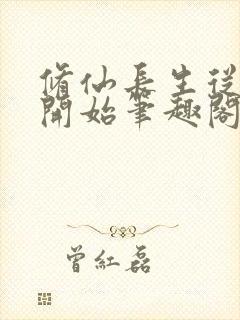 脩仙長生從
開始筆趣閣
曾紅磊